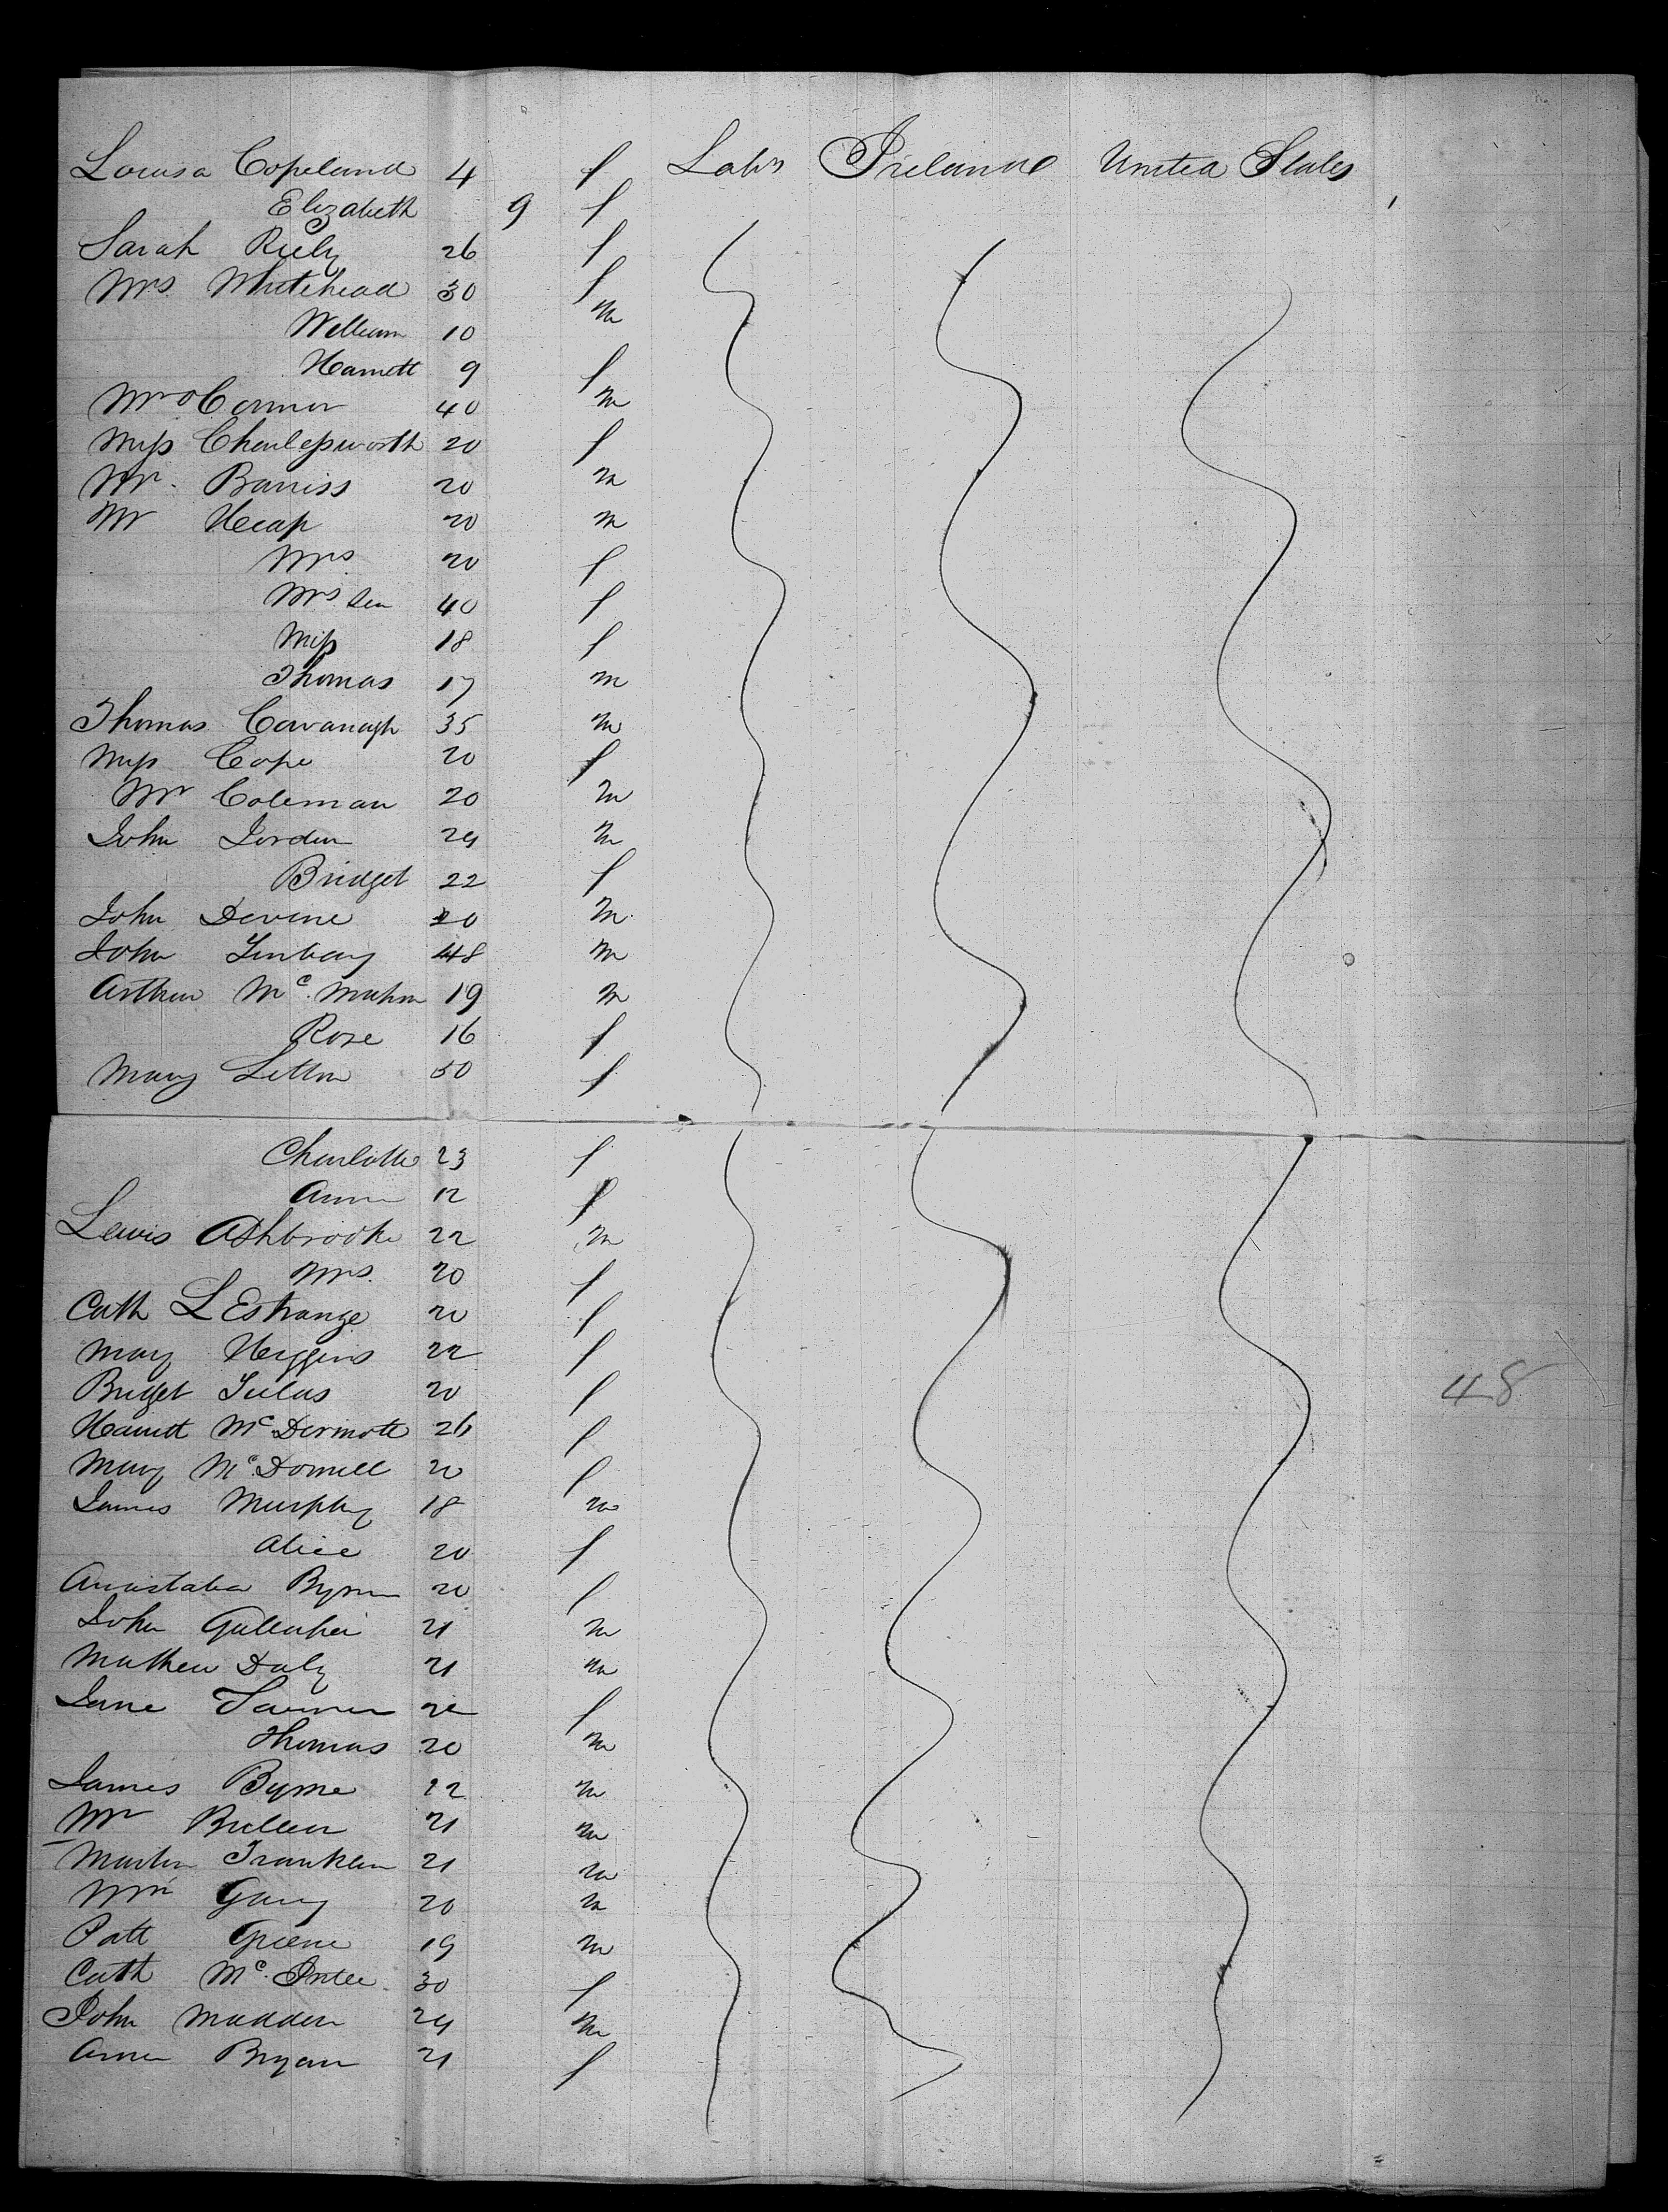 Louisa Copeland 4 f Labr Ireland United States
Elizabeth 9 f
Sarah Riely 26 f
Mrs Whitehead 30 f
William 10 m
Harriett 9 f
Mr O'Connor 40 m
Miss Charlesworth 20 f
Mr. Barriss 20 m
Mr Heap 20 m
Mrs 20 f
Mrs Sen 40 f
Miss 18 f
Thomas 17 m
Thomas Cavanagh 35 m
Miss Cope 20 f
Mr Coleman 20 m
John Jordan 24 m
Bridget 22 f
John Devine 20 m
John 48 m
Arthur Mc. Mahon 19 m
Rose 16 f
Mary Litton 50 f
Charlotte 23 f
Anne 12 f
Lewis Ashbrooke 22 m
Mrs. 20 f
Cath L Estrange 20 f
Mary Higgins 22 f
Bridget 20 f
Harriett Mc Dermott 26 f
Mary Mc. Donnell 20 f
James Murphy 18 m
Alice 20 f
Anastatia Byrne 20 f
John Gallagher 21 m
Mathew Daly 21 m
Jane 22 f
Thomas 20 m
James Byrne 22 m
Mr Bullen 21 m
Martin Franklin 21 m
Wm Gary 20 m
Patt Greene 19 m
Cath Mc. Entee 30 f
John Madden 24 m
Anne Bryan 21 f
48